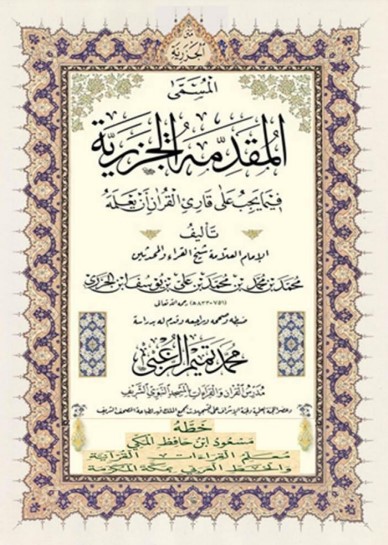 متن
الجزرية
المسمى
المقدمة الجزرية
فيما يجب على قارئ القرآن أن يعلمه
تأليف
الإمام العلامة شيخ القراء والمحدثين
محمد بن محمد بن محمد بن علي بن يوسف ابن الجزري
(٧٥١-٨٣٣هـ) رحمه الله تعالى
ضبطه وصححه وراجعه وقدم له بدراسة
محمد تميم الزعبي
مدرس القرآن والقراءات بالمسجد النبوي الشريف
على تسجيلات مجمع الملك فهد لطباعة المصحف الشريف
خطه
مسعود ابن حافظ المكي
معلم القراءات القرآنية
والخط العربي بمكة المكرمة